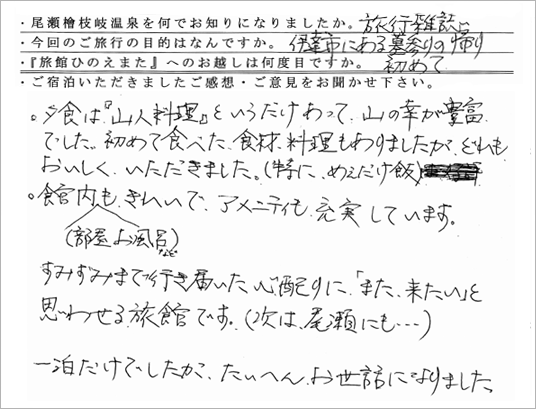 ・尾瀬檜枝岐温泉を何でお知りになりましたか。旅行雑誌に
・今回のご旅行の目的はなんですか。伊達市にある墓参りの帰り
・『旅館ひのえまた』へのお越しは何度目ですか。初めて
・ご宿泊いただきましたご感想・ご意見をお聞かせ下さい。
。夕食は『山人料理』というだけあって、山の幸が豊富
でした。初めて食べた食材、料理もありましたが、どれも
おいしく、いただきました。(特に、めえだけ飯)
。館内も、きれいで、アメニティも充実しています。
(部屋、お風呂など)
すみずみまで行き届いた心配りに、「また、来たい」と
思わせる旅館です。(次は、尾瀬にも…)
一泊だけでしたが、たいへんお世話になりました。